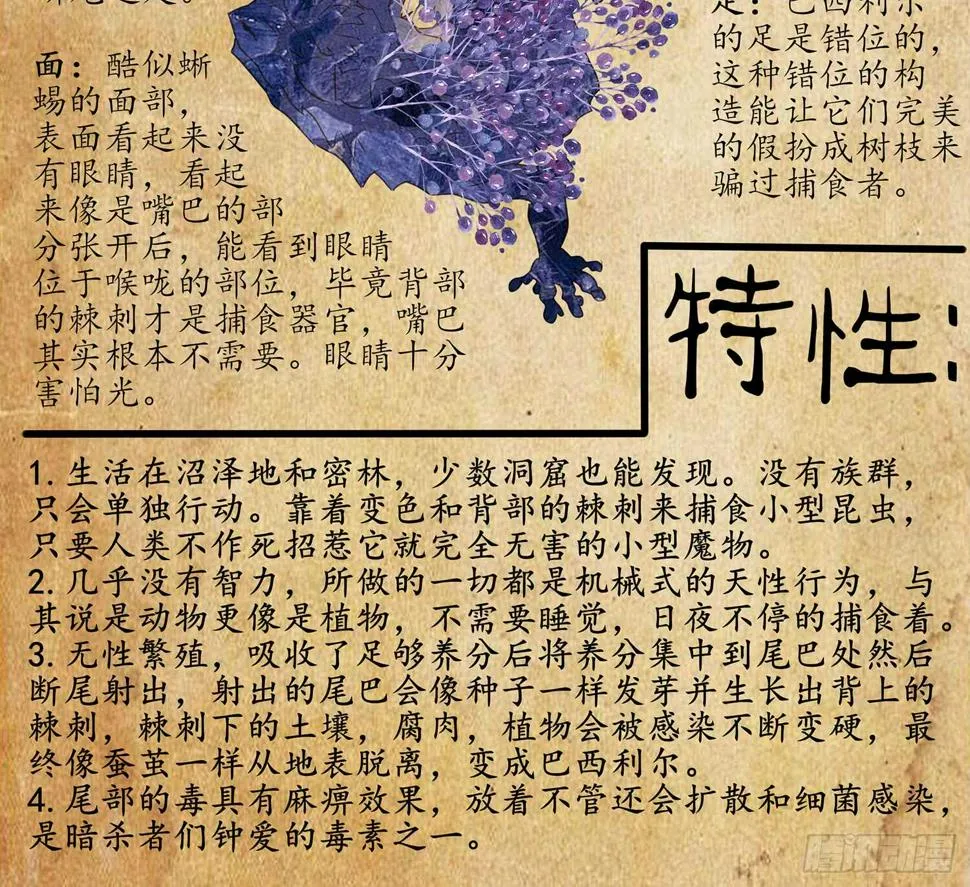 面：酷似蜥
蜴的面部，
表面看起来没
有眼睛，看起
来像是嘴巴的部
分张开后，能看到眼睛
位于喉咙的部位，毕竟背部
的棘刺才是捕食器官，嘴巴
其实根本不需要。眼睛十分
害怕光。
足：巴西利尔
的足是错位的，
这种错位的构
造能让它们完美
的假扮成树枝来
骗过捕食者。
特性：
1. 生活在沼泽地和密林，少数洞窟也能发现。没有族群，
只会单独行动。靠着变色和背部的棘刺来捕食小型昆虫，
只要人类不作死招惹它就完全无害的小型魔物。
2. 几乎没有智力，所做的一切都是机械式的天性行为，与
其说是动物更像是植物，不需要睡觉，日夜不停的捕食着。
3. 无性繁殖，吸收了足够养分后将养分集中到尾巴处然后
断尾射出，射出的尾巴会像种子一样发芽并生长出背上的
棘刺，棘刺下的土壤，腐肉，植物会被感染不断变硬，最
终像蚕茧一样从地表脱离，变成巴西利尔。
4. 尾部的毒具有麻痹效果，放着不管还会扩散和细菌感染，
是暗杀者们钟爱的毒素之一。
腾讯动漫